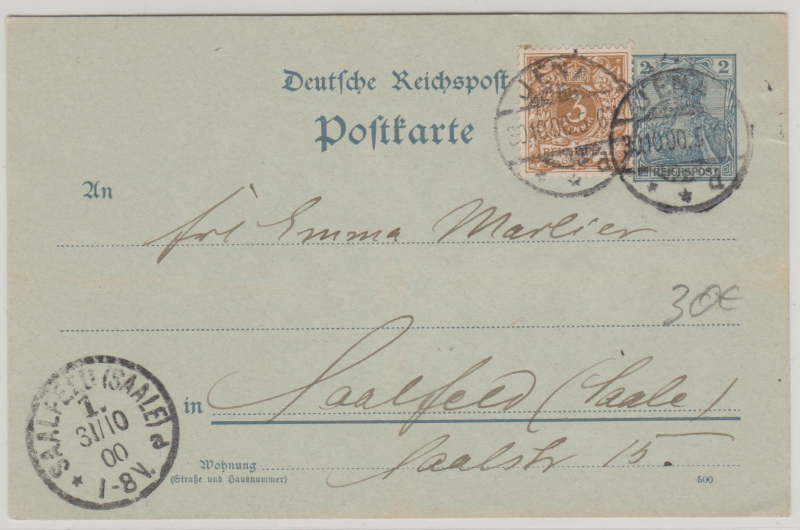 Deutsche Reichspost
Postkarte
3
REICHSPOST
2
REICHSPOST
JENA
30.10.00.
d
JENA
30.10.00.
d
An
Frl Emma Marlier
30€
in Saalfeld (Saale)
Saalstr 15.
Wohnung
(Straße und Hausnummer)
500
SAALFELD (SAALE)
1.
31/10
00
7-8V.